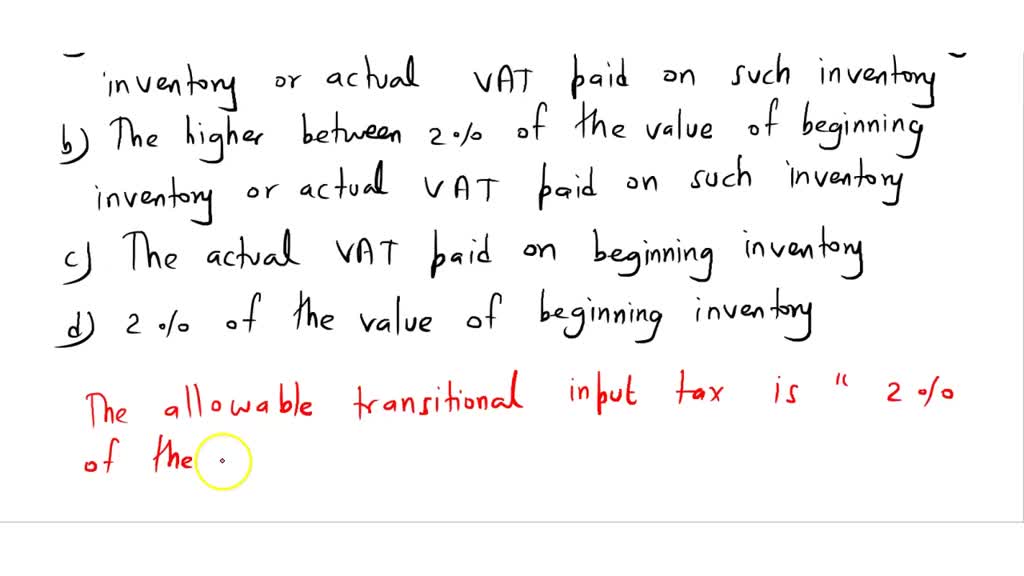 inventory or actual VAT paid on such inventory
b) The higher between 2% of the value of beginning
inventory or actual VAT paid on such inventory
c) The actual VAT paid on beginning inventory
d) 2% of the value of beginning inventory
The allowable transitional input tax is " 2%
of the